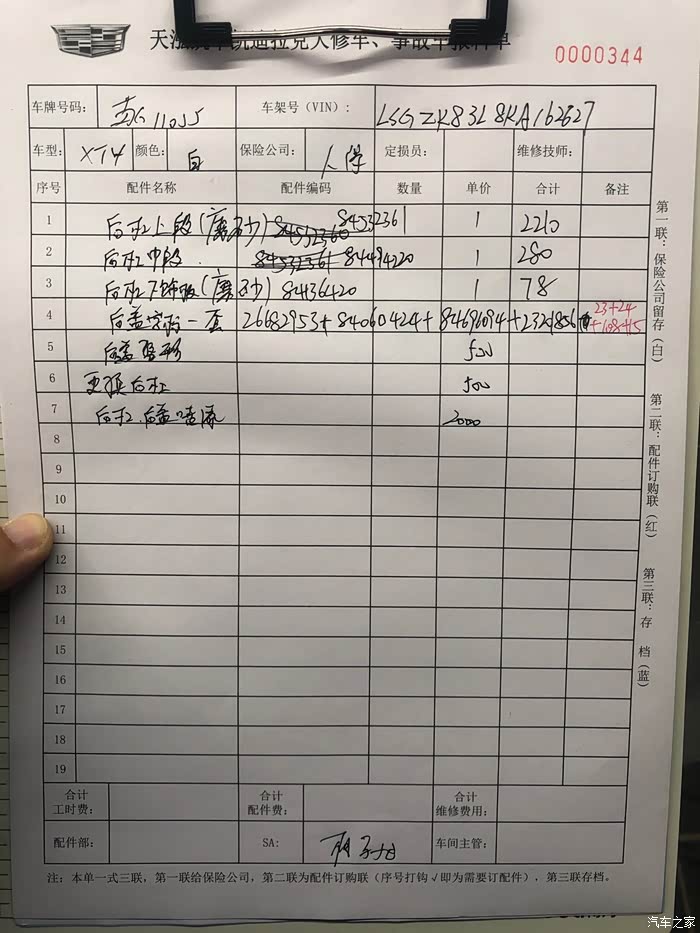 0000344
车牌号码: 车架号(VIN): LSGZK83L8KA162627
车型: XT4 颜色: 白 保险公司: 人保 定损员: 维修技师:
序号 配件名称 配件编码 数量 单价 合计 备注
1 后杠上段( 84532360 84532361 1 2210
2 后杠中段 84532361 84494220 1 280
3 84136420 1 78
4 后盖 一套 26682953+84060424+84696094+ 23+24
5 后盖整形 500
6 更换后杠 500
7 后杠、后盖喷漆 2000
8
9
10
11
12
13
14
15
16
17
18
19
合计工时费: 合计配件费: 合计维修费用:
配件部: SA: 车间主管:
注:本单一式三联,第一联给保险公司,第二联为配件订购联(序号打钩√即为需要订配件),第三联存档。
第一联:保险公司留存(白)
第二联:配件订购联(红)
第三联:存 档(蓝)
汽车之家